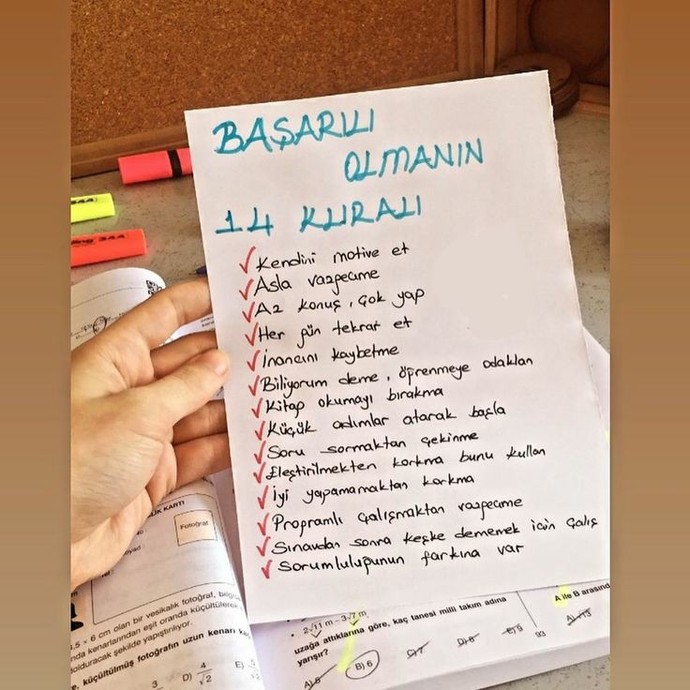 BAŞARILI
OLMANIN
14 KURALI
Kendini motive et
Asla vazgeçme
Az konuş, çok yap
Her gün tekrar et
İnancını kaybetme
Biliyorum deme, öğrenmeye odaklan
Kitap okumayı bırakma
Küçük adımlar atarak başla
Soru sormaktan çekinme
Eleştirilmekten korkma bunu kullan
İyi yapamamaktan korkma
Programlı çalışmaktan vazgeçme
Sınavdan sonra keşke dememek için çalış
Sorumluluğunun farkına var
344
344
KARTI
Fotoğraf
,5 × 6 cm olan bir vesikalık fotoğraf,
kenarlarından eşit oranda küçültülerek
dolduracak şekilde yapıştırılıyor.
küçültülmüş fotoğrafın uzun kenarı
D) 4/√2
E)
2√11 m - 3√7 m
uzağa attıklarına göre, kaç tanesi milli takım adına
yarışır?
B) 6
A ile B arasınd